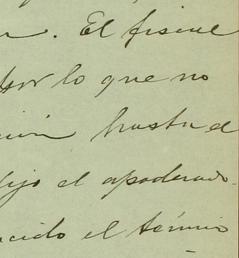 . El fiscal
por lo que no
hasta el
dijo el apoderado
el término